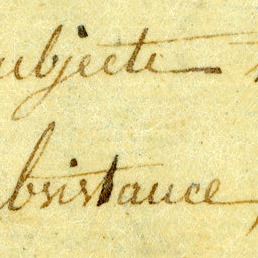 ubjecte
bsistance,